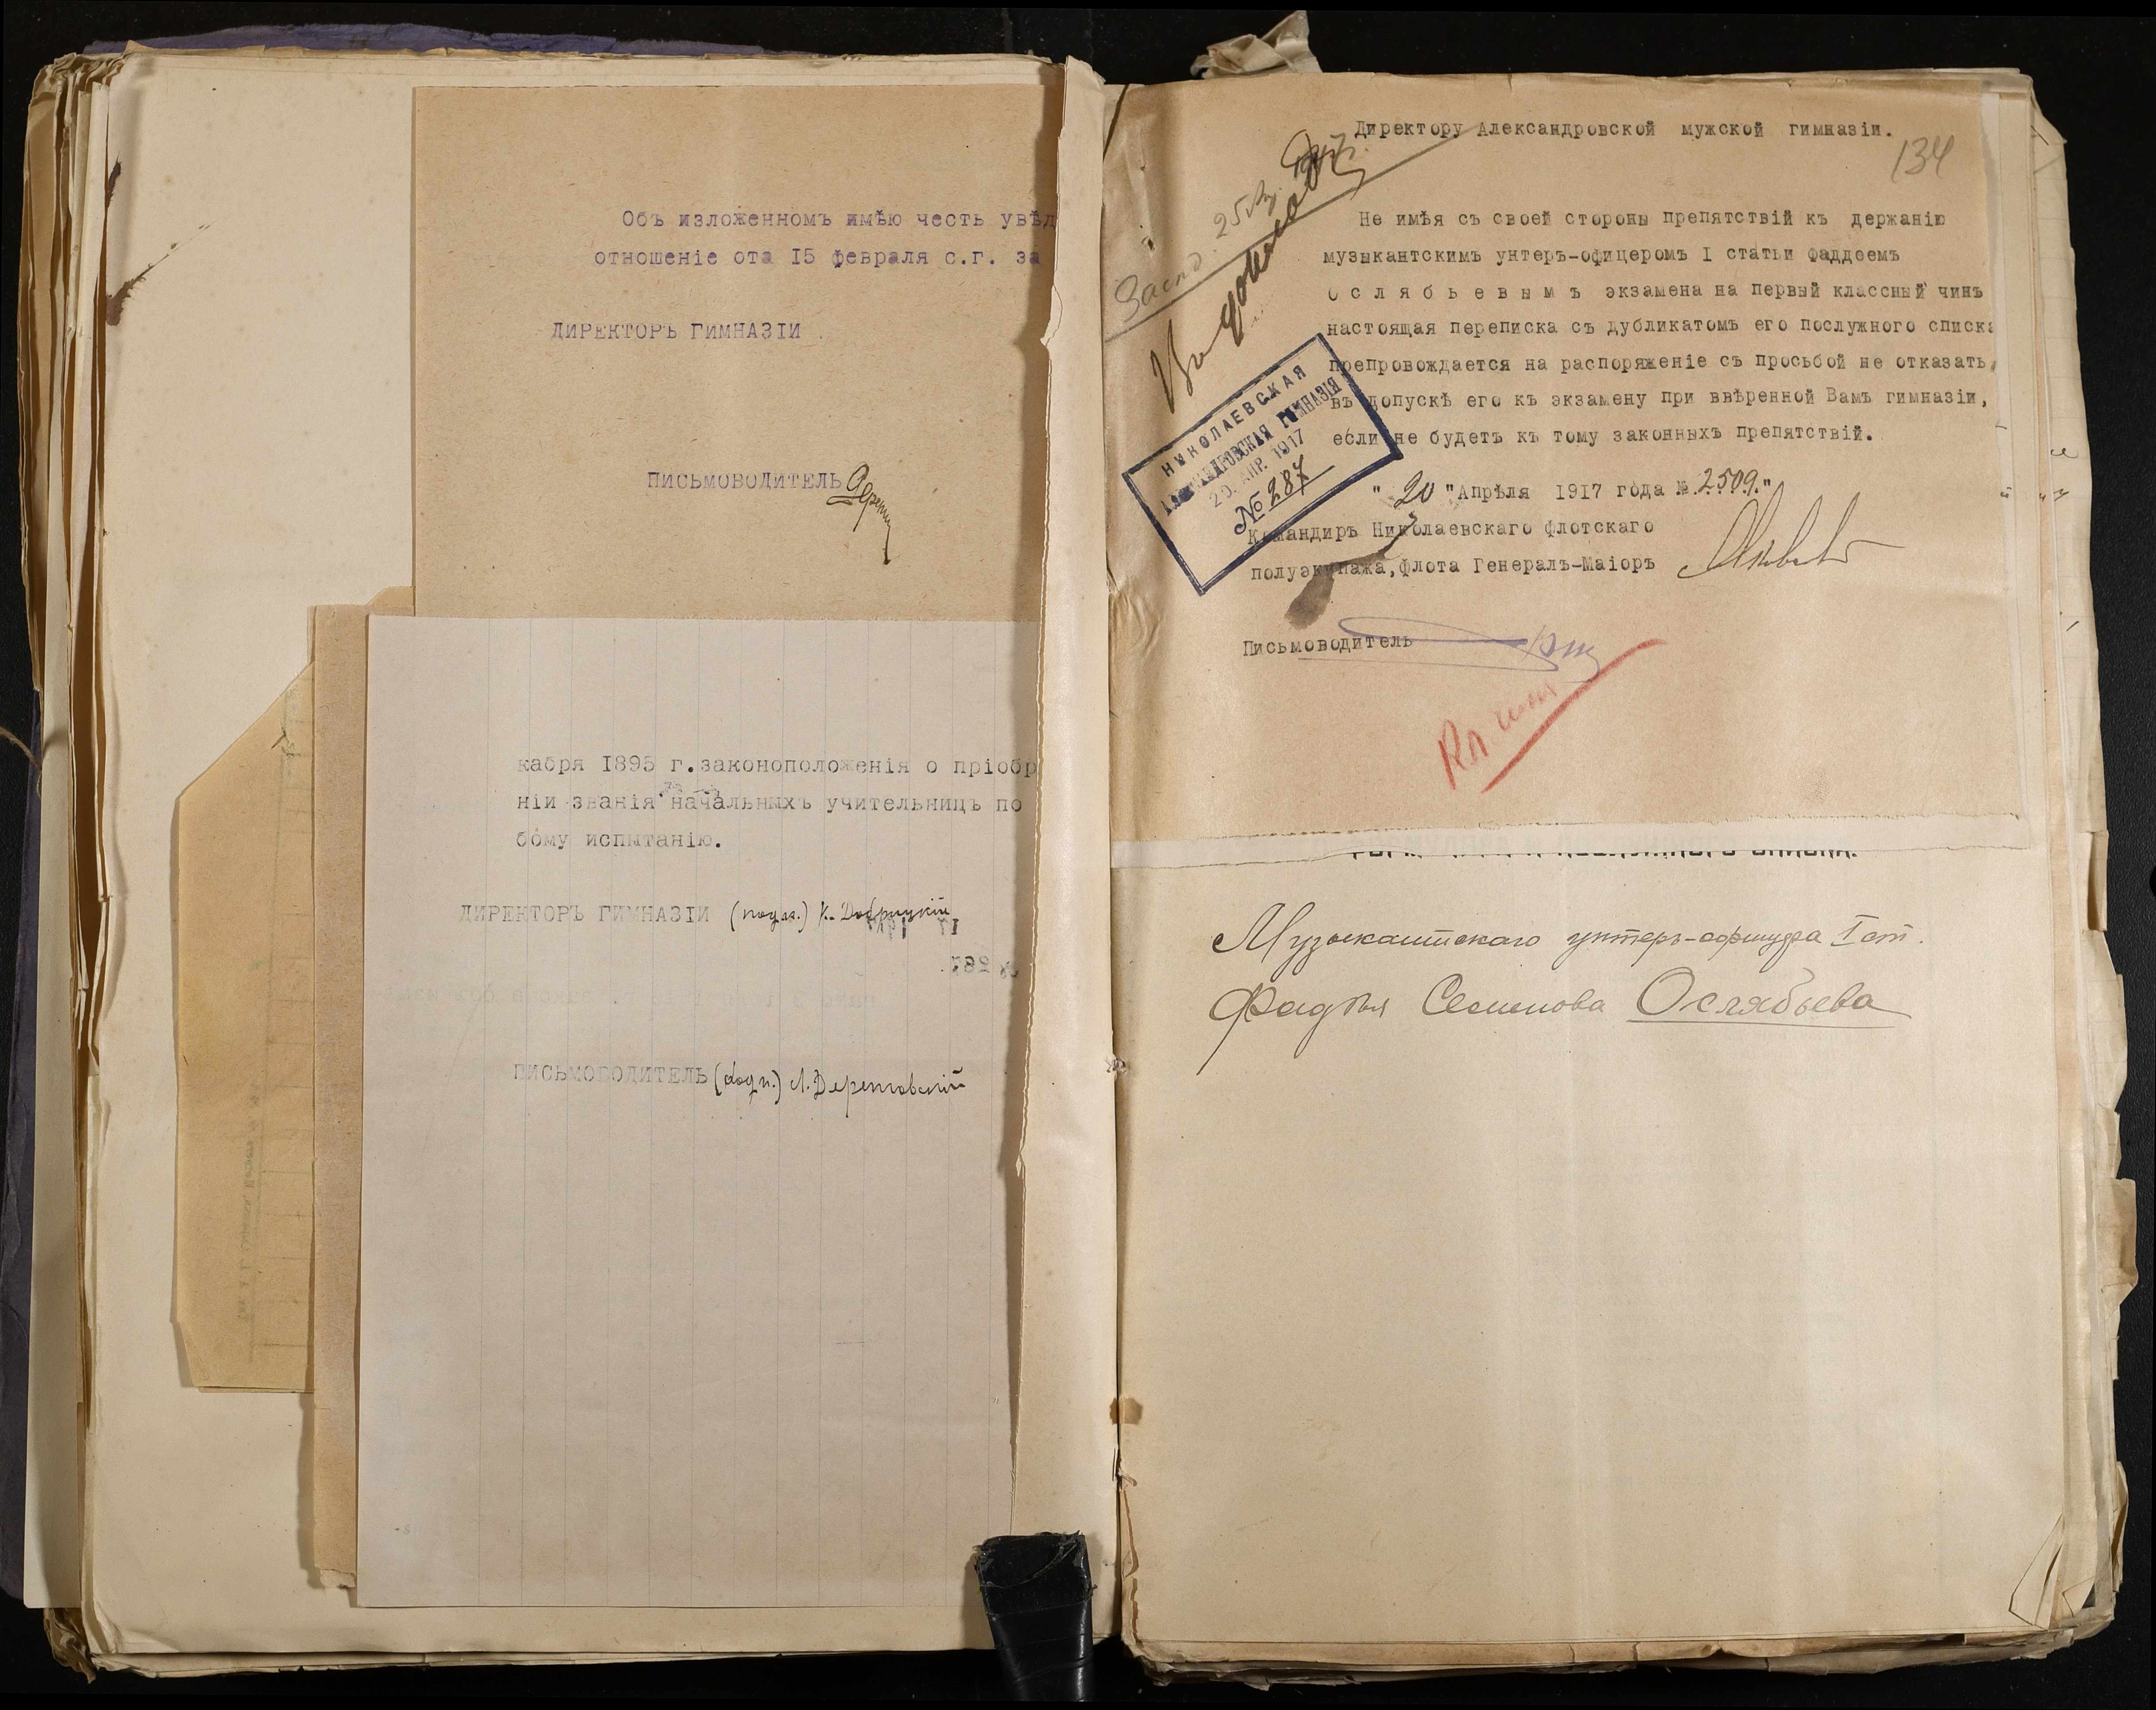 Объ изложенномъ имѣю честь увѣд
отношеніе ота I5 февраля с.г. за
ДИРЕКТОРЪ ГИМНАЗІИ
ПИСЬМОВОДИТЕЛЬ
кабря I895 г.законоположенія о пріобр
ніи званія начальныхъ учительницъ по
бому испытанію.
ДИРЕКТОРЪ ГИМНАЗІИ (подп.) К. Добрицкій
ПИСЬМОВОДИТЕЛЬ (подп.)
Директору Александровской мужской гимназіи.
134
Не имѣя съ своей стороны препятствій къ держанію
музыкантскимъ унтеръ-офицеромъ I статьи Фаддеемъ
О с л я б ь е в ы м ъ экзамена на первый классный чинъ
настоящая переписка съ дубликатомъ его послужного списка
препровождается на распоряженіе съ просьбой не отказать,
въ допускѣ его къ экзамену при ввѣренной Вамъ гимназіи,
если не будетъ къ тому законныхъ препятствій.
НИКОЛАЕВСКАЯ
АЛЕКСАНДРОВСКАЯ ГИМНАЗІЯ
20. АПР. 1917
№ 287
" 20 "Апрѣля 1917 года № 2509."
Командиръ Николаевскаго флотскаго
полуэкипажа,флота Генералъ-Маіоръ
Письмоводитель
Музыкантскаго унтеръ-офицера I ст.
Фадѣя Семенова Ослябьева